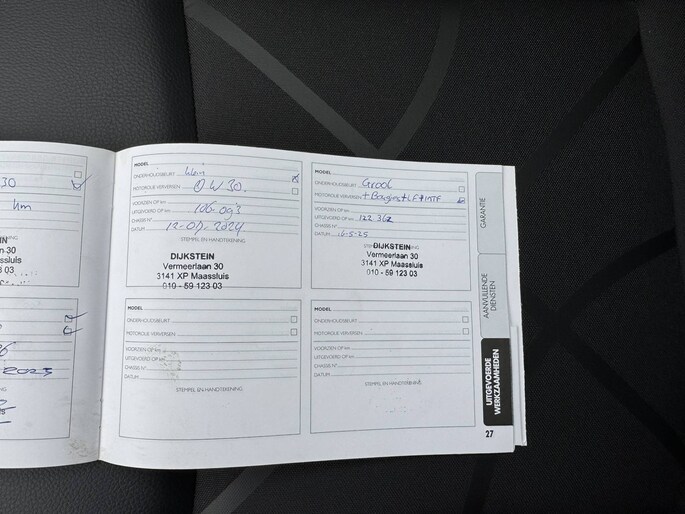 30
km
IN
n 30
ssluis
03
2023
MODEL
ONDERHOUDSBEURT Klein
MOTOROLIE VERVERSEN 0W30.
VOORZIEN OP km
UITGEVOERD OP km 106-093
CHASSIS N°
DATUM
STEMPEL EN HANDTEKENING
DIJKSTEIN
Vermeerlaan 30
3141 XP Maassluis
010 - 59 123 03
MODEL
ONDERHOUDSBEURT Groot
MOTOROLIE VERVERSEN + Bougies + LF + IMTF
VOORZIEN OP km
UITGEVOERD OP km 122 362
CHASSIS N°
DATUM 16-5-25
DIJKSTEIN
Vermeerlaan 30
3141 XP Maassluis
010 - 59 123 03
MODEL
ONDERHOUDSBEURT
MOTOROLIE VERVERSEN
VOORZIEN OP km
UITGEVOERD OP km
CHASSIS N°
DATUM
STEMPEL EN HANDTEKENING
MODEL
ONDERHOUDSBEURT
MOTOROLIE VERVERSEN
VOORZIEN OP km
UITGEVOERD OP km
CHASSIS N°
DATUM
STEMPEL EN HANDTEKENING
GARANTIE
AANVULLENDE
DIENSTEN
UITGEVOERDE
WERKZAAMHEDEN
27